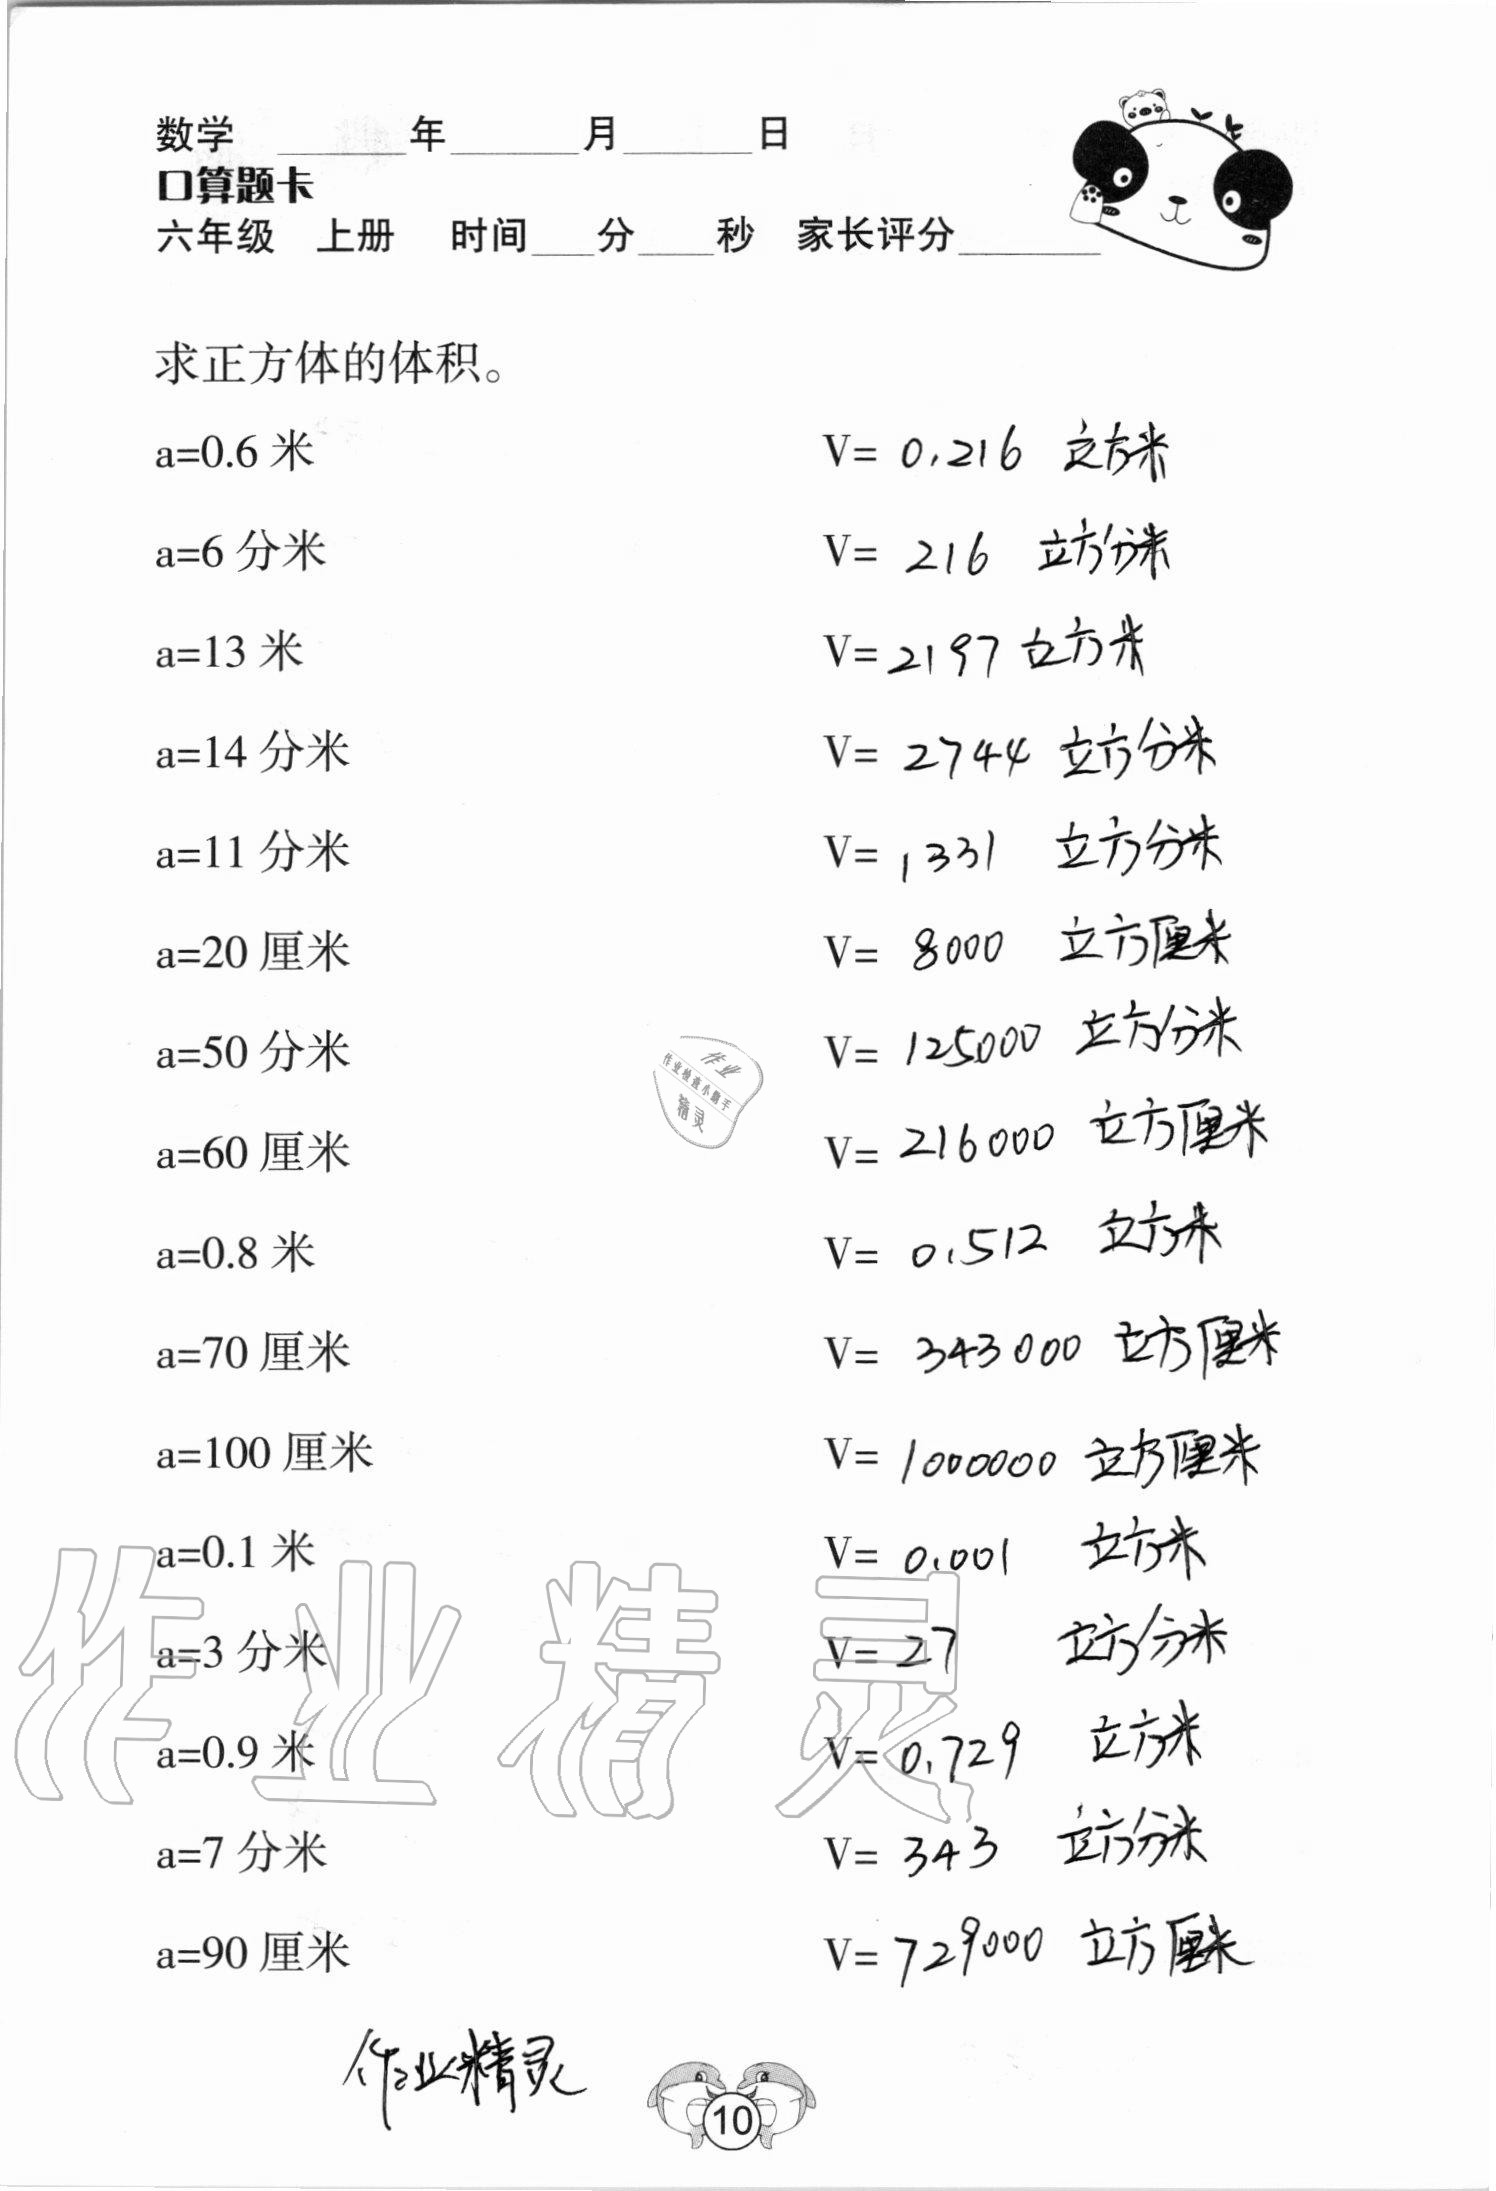 数学 ____年____月____日
口算题卡
六年级 上册 时间__分__秒 家长评分____
求正方体的体积。
a=0.6 米 V= 0.216 立方米
a=6 分米 V= 216 立方分米
a=13 米 V= 2197 立方米
a=14 分米 V= 2744 立方分米
a=11 分米 V= 1331 立方分米
a=20 厘米 V= 8000 立方厘米
a=50 分米 V= 125000 立方分米
作业
作业检查小助手
精灵
a=60 厘米 V= 216000 立方厘米
a=0.8 米 V= 0.512 立方米
a=70 厘米 V= 343000 立方厘米
a=100 厘米 V= 1000000 立方厘米
a=0.1 米 V= 0.001 立方米
作业精灵
a=3 分米 V= 27 立方分米
a=0.9 米 V= 0.729 立方米
a=7 分米 V= 343 立方分米
a=90 厘米 V= 729000 立方厘米
作业精灵
10